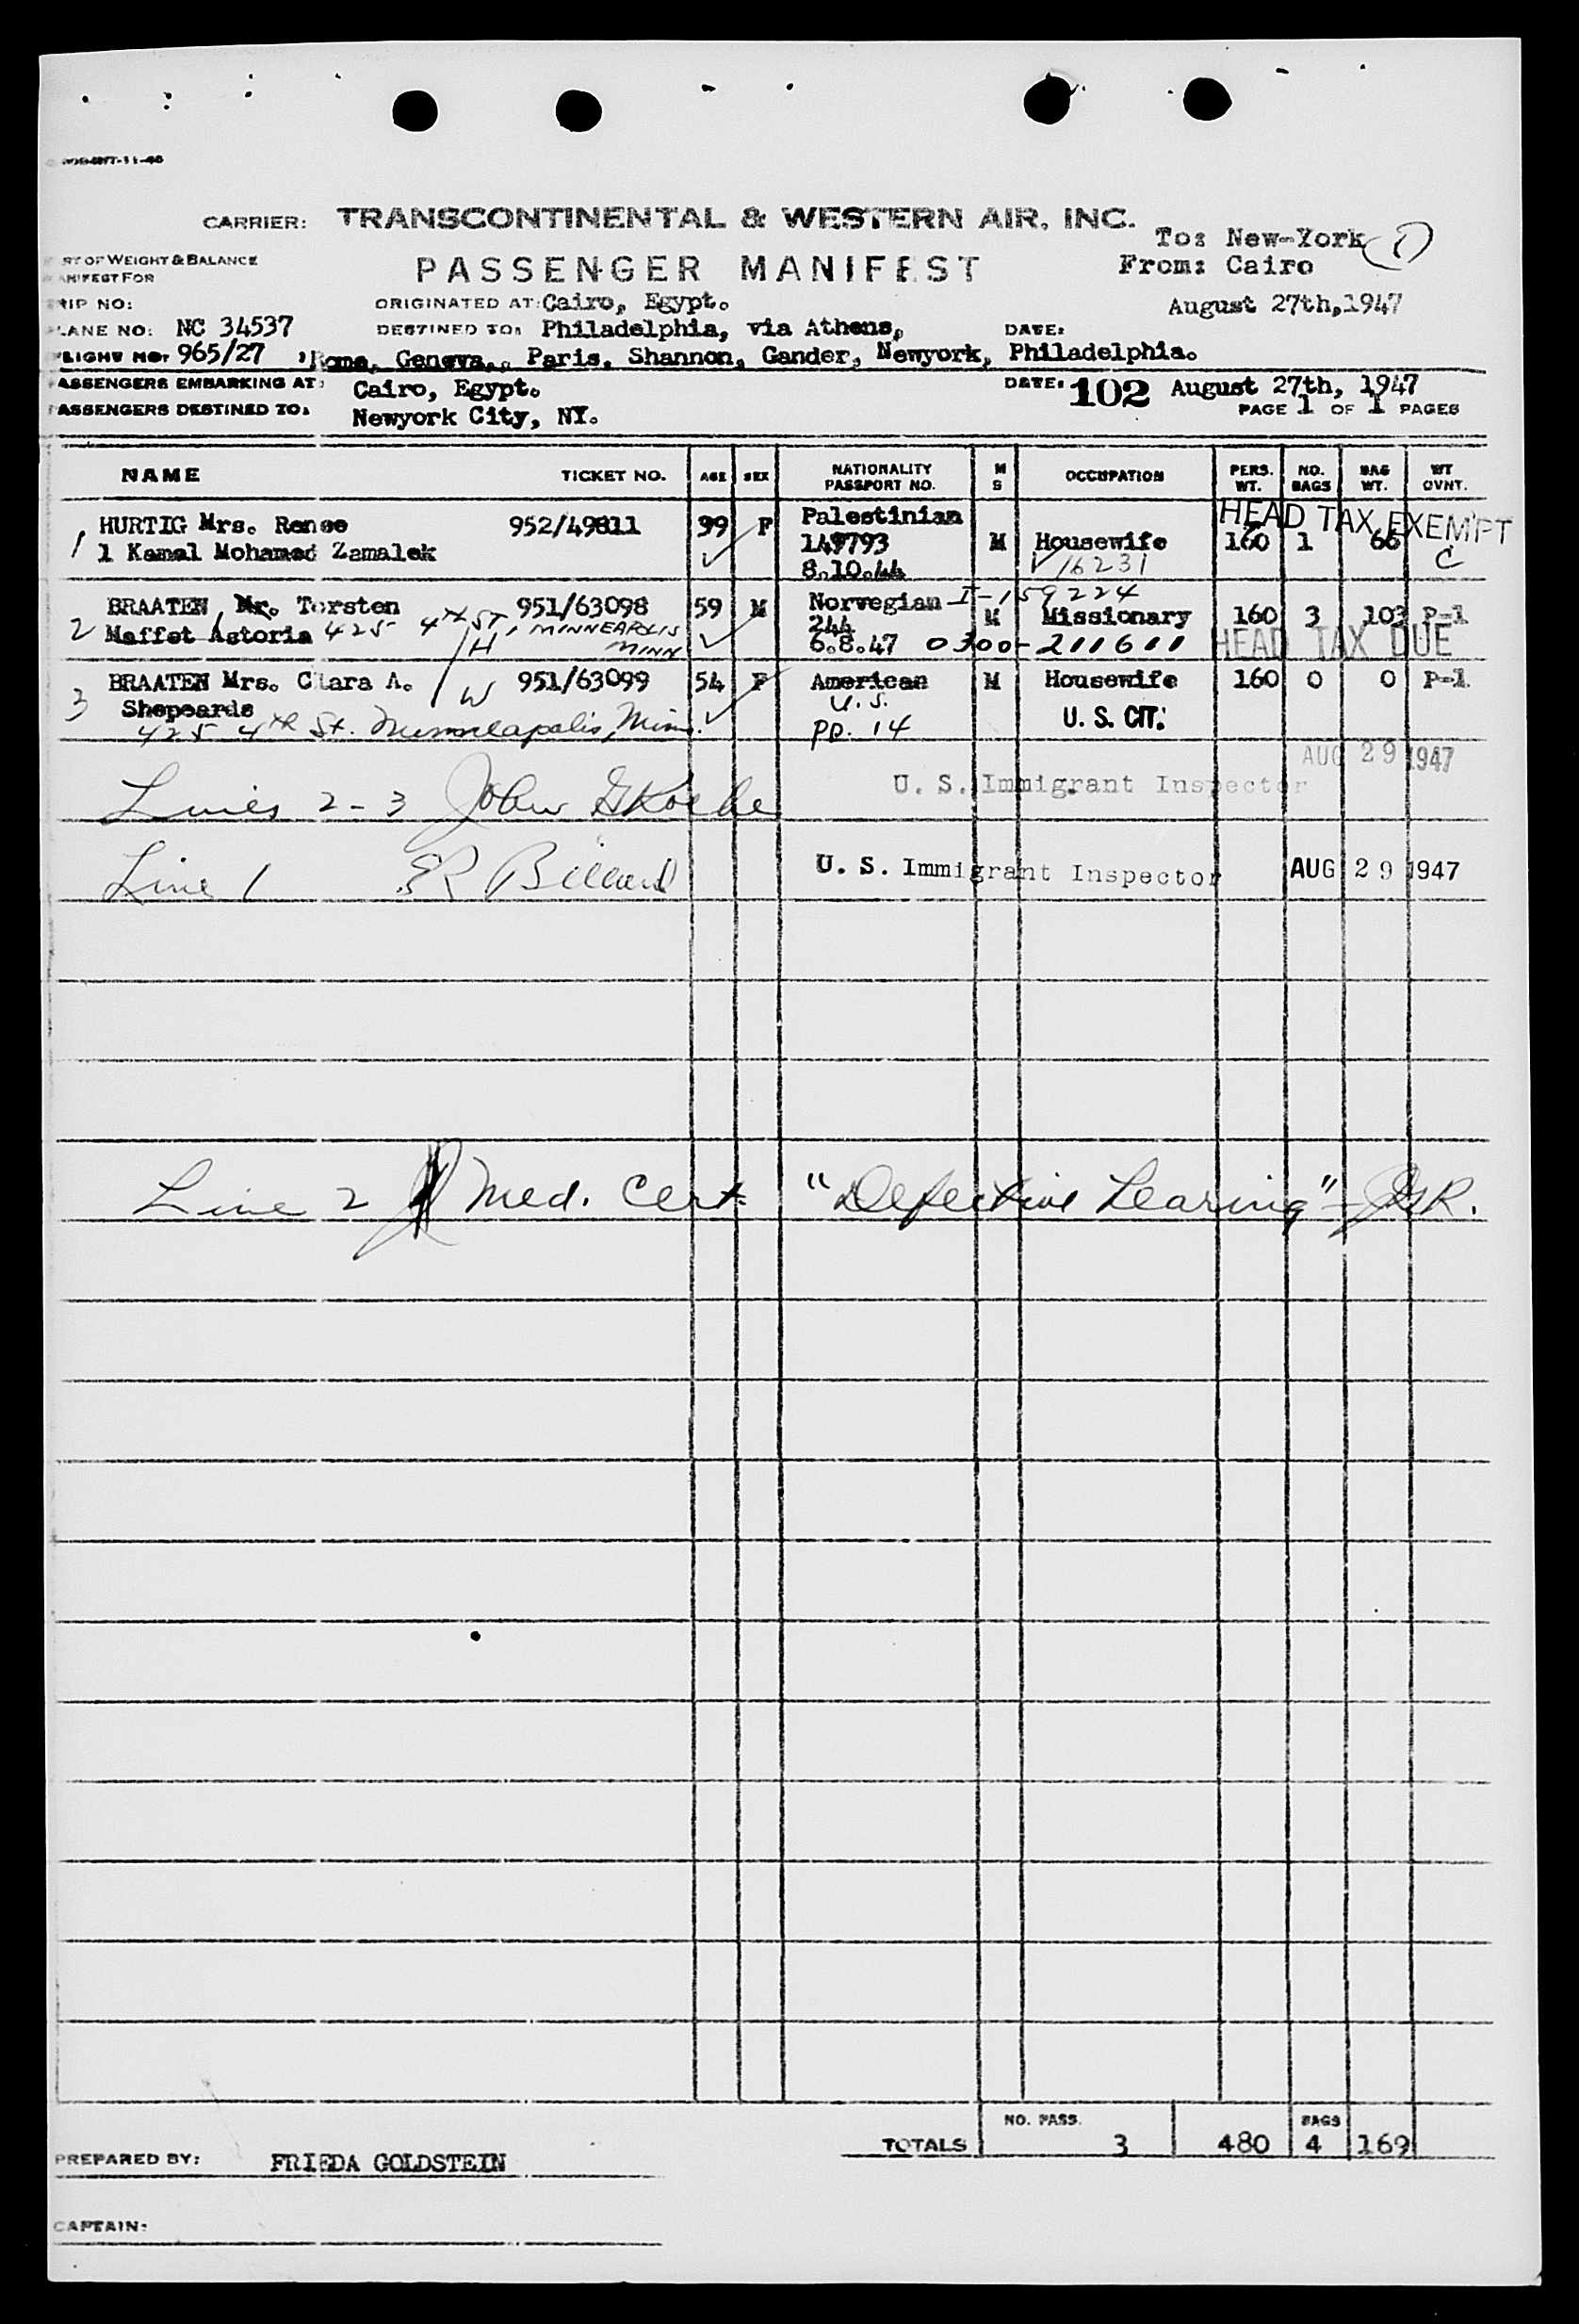 CARRIER: TRANSCONTINENTAL & WESTERN AIR, INC.
To: New-York (1)
OF WEIGHT & BALANCE
PASSENGER MANIFEST
From: Cairo
MANIFEST FOR
TRIP NO:
ORIGINATED AT: Cairo, Egypt.
August 27th, 1947
PLANE NO: NC 34537
DESTINED TO: Philadelphia, via Athens,
DATE:
FLIGHT NO: 965/27
Rome, Geneva,, Paris, Shannon, Gander, Newyork, Philadelphia.
PASSENGERS EMBARKING AT: Cairo, Egypt.
DATE: 102 August 27th, 1947
PASSENGERS DESTINED TO: Newyork City, NY.
PAGE 1 OF 1 PAGES
NAME TICKET NO. AGE SEX NATIONALITY PASSPORT NO. M S OCCUPATION PERS. WT. NO. BAGS BAG WT. WT OVNT.
HEAD TAX EXEMPT
1 HURTIG Mrs. Renee 952/49811 39 F Palestinian
1 Kamal Mohamed Zamalek 149793 M Housewife 160 1 66 C
8.10.44 16231
BRAATEN, Mr. Torsten 951/63098 59 M Norwegian I-159224
2 Maffet Astoria 425 4TH ST, MINNEAPOLIS 244 M Missionary 160 3 103 P-1
H MINN 6.8.47 0300-211611 HEAD TAX DUE
BRAATEN Mrs. Clara A. W 951/63099 54 F American M Housewife 160 0 0 P-1
3 Shepeards U.S. U. S. CIT.
425 4th St. Minneapolis, Minn. PP. 14
AUG 29 1947
Lines 2-3 John G U. S. Immigrant Inspector
Line 1 U. S. Immigrant Inspector AUG 29 1947
Line 2 Med. Cert. "Defective hearing" - JGR.
TOTALS NO. PASS. 3 480 BAGS 4 169
PREPARED BY: FRIEDA GOLDSTEIN
CAPTAIN: